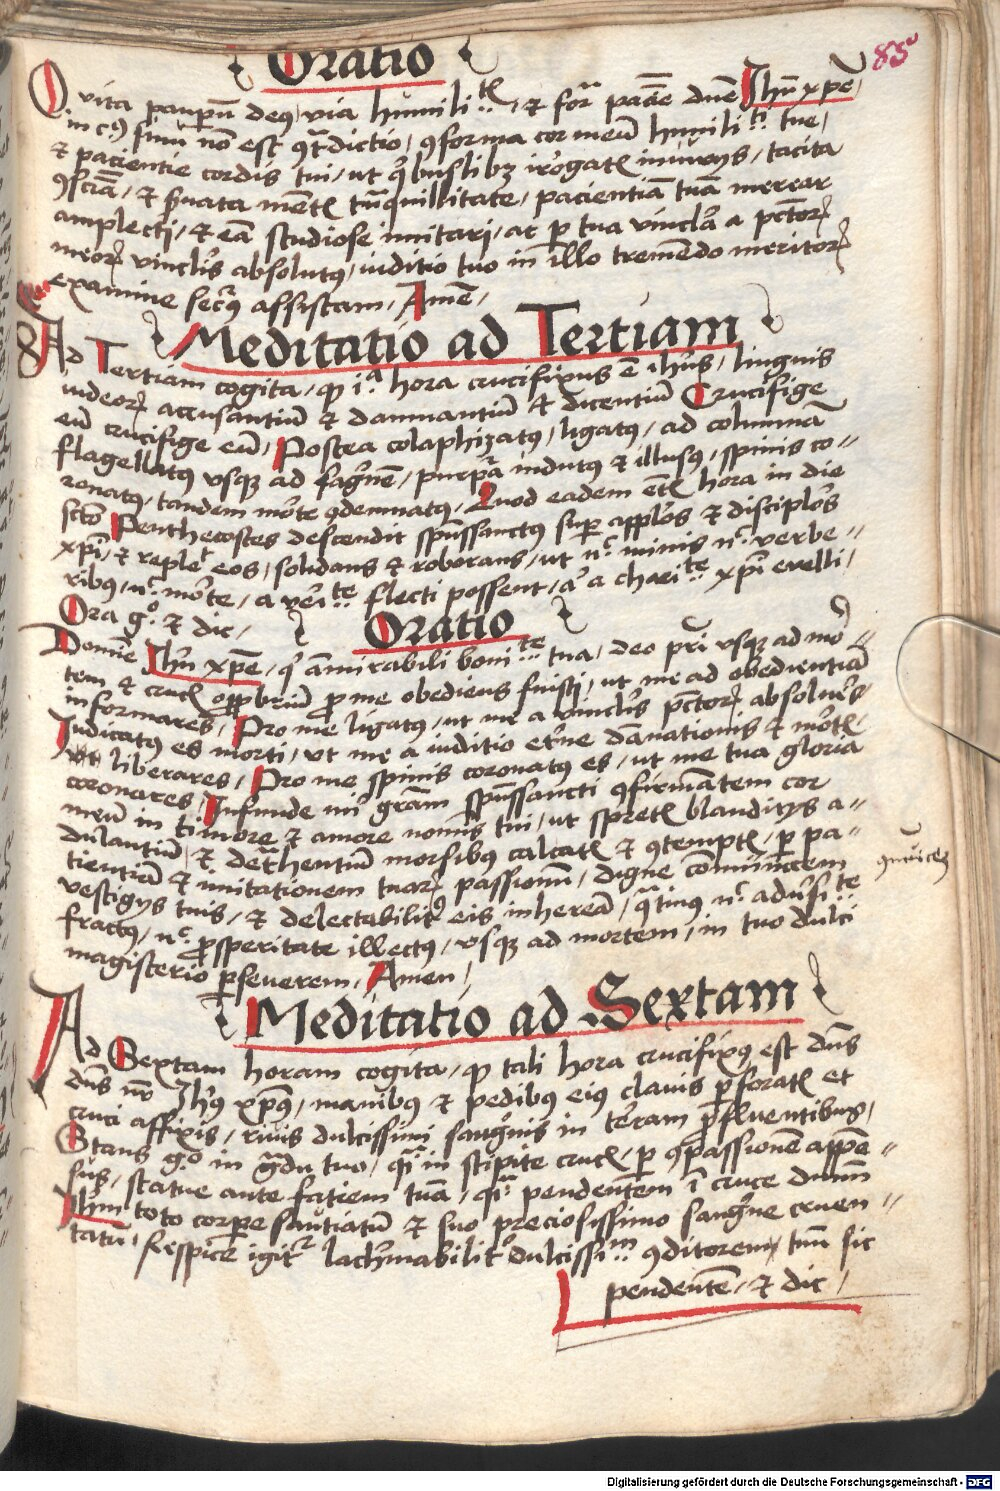 85
Oratio
O vita paupeꝝ deꝰ, via humilitatis, et foꝛ pacie dne Ihu xpe
in cꝰ sinu no est ꝯtdictio, ꝯforma cor meu humiliti tue,
et pacientie cordis tui, ut qbuslibꝫ irogatis iniurijs, tacita
ꝯscia, et suata mentis tnquillitate, pacientia tua merear
amplecti, et ea studiose imitari, ac p tua vincla a pctoꝝ
meoꝝ vinclis absolutꝰ, iuditio tuo in illo tremendo meritoꝝ
examine securꝰ assistam, Amē,
Meditatio ad Tertiam
Ad Tertiam cogita, qp ia hora crucifixus e ihus, linguis
iudeoꝝ accusantiu et damnantiu et dicentiu Crucifige
eu crucifige eu, Postea colaphizatꝰ, ligatꝰ, ad columna
flagellatꝰ vsqꝫ ad sagne, purpa indutꝰ et illusꝰ, spinis co-
ronatꝰ, tandem morte ꝯdemnatꝰ, Quod eadem etis hora in die
scto Penthecostes descendit spussanctꝰ sup applos et disciplos
xpi, et replet eos, solidans et roborans, ut nc minis nc verbe-
ribꝰ, nc morte, a veritate flecti possent, a a charitate xpi evelli,
Ora go et dic,
Oratio
Domine Ihu xpe, q amirabili bonitate tua, deo pri vsqꝫ ad mor-
tem et crucis opprobriu p me obediens fuisti, ut me ad obedientia
informares, Pro me ligatꝰ, ut me a vinclis pctoꝝ absolueres,
Iudicatꝰ es morti, vt me a iuditio eterne danationis et mortis
liberares, Pro me spinis coronatꝰ es, ut me tua gloria
coronares, Infunde mi gram spussancti ꝯfirmatem cor
meu in timore et amore nominis tui, ut spretis blanditijs a-
dulantiu, et detrhentiu morsibꝰ calcatis et ꝯtemptis, p pa-
tientia et imitationem tuaꝝ passionu, digne comunicem
vestigijs tuis, et delectabilitꝰ eis inherea, qtinus nc aduersitate
fractꝰ, nc psperitate illectꝰ, vsqꝫ ad mortem, in tuo dulci
magisterio pseuerem, Amen,
Meditatio ad Sextam
Ad Sextam horam cogita, qp tali hora crucifixꝰ est dns
dns nr Ihus xpus, manibꝰ et pedibꝰ eiꝰ clavis pforatis et
cruci affixis, riuis dulcissimi sanguis in terram pfluentibus,
Stans go in gradu tuo, qi in stipite crucis, p ꝯpassione appe-
sus, statue ante faciem tua, qi pendentem i cruce dnm
Ihm toto corpe sautiatu et suo preciosissimo sangune cruen-
tatu, Respice igitr lachrimabilitr dulcissimum ꝯditorem, tuu sic
pendente, et dic,